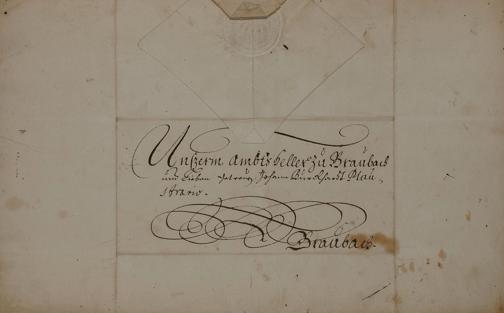 Unßerm Ambtskeller zu Braubach
und Lieben getreuen Johann Burckhardt Plau-
strario.
Braubach.